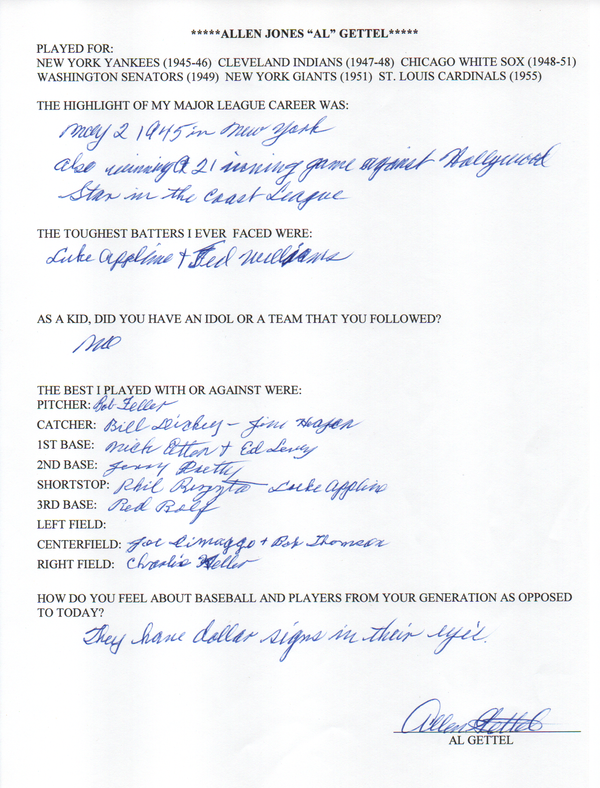 *****ALLEN JONES “AL” GETTEL*****
PLAYED FOR:
NEW YORK YANKEES (1945-46) CLEVELAND INDIANS (1947-48) CHICAGO WHITE SOX (1948-51)
WASHINGTON SENATORS (1949) NEW YORK GIANTS (1951) ST. LOUIS CARDINALS (1955)
THE HIGHLIGHT OF MY MAJOR LEAGUE CAREER WAS:
May 2 1945 in New York
also winning a 21 inning game against Hollywood
Star in the Coast League
THE TOUGHEST BATTERS I EVER FACED WERE:
Luke Appline + Ted Williams
AS A KID, DID YOU HAVE AN IDOL OR A TEAM THAT YOU FOLLOWED?
No
THE BEST I PLAYED WITH OR AGAINST WERE:
PITCHER: Bob Feller
CATCHER: Bill Dickey - Jim Hegan
1ST BASE: Nick Etten + Ed Levy
2ND BASE: Jerry
SHORTSTOP: Phil Rizzuto Luke Appline
3RD BASE: Red Rolf
LEFT FIELD:
CENTERFIELD: Joe Dimaggo + Bob Thomson
RIGHT FIELD: Charlie Keller
HOW DO YOU FEEL ABOUT BASEBALL AND PLAYERS FROM YOUR GENERATION AS OPPOSED
TO TODAY?
They have dollar signs in their eyes.
Allen Gettel
AL GETTEL